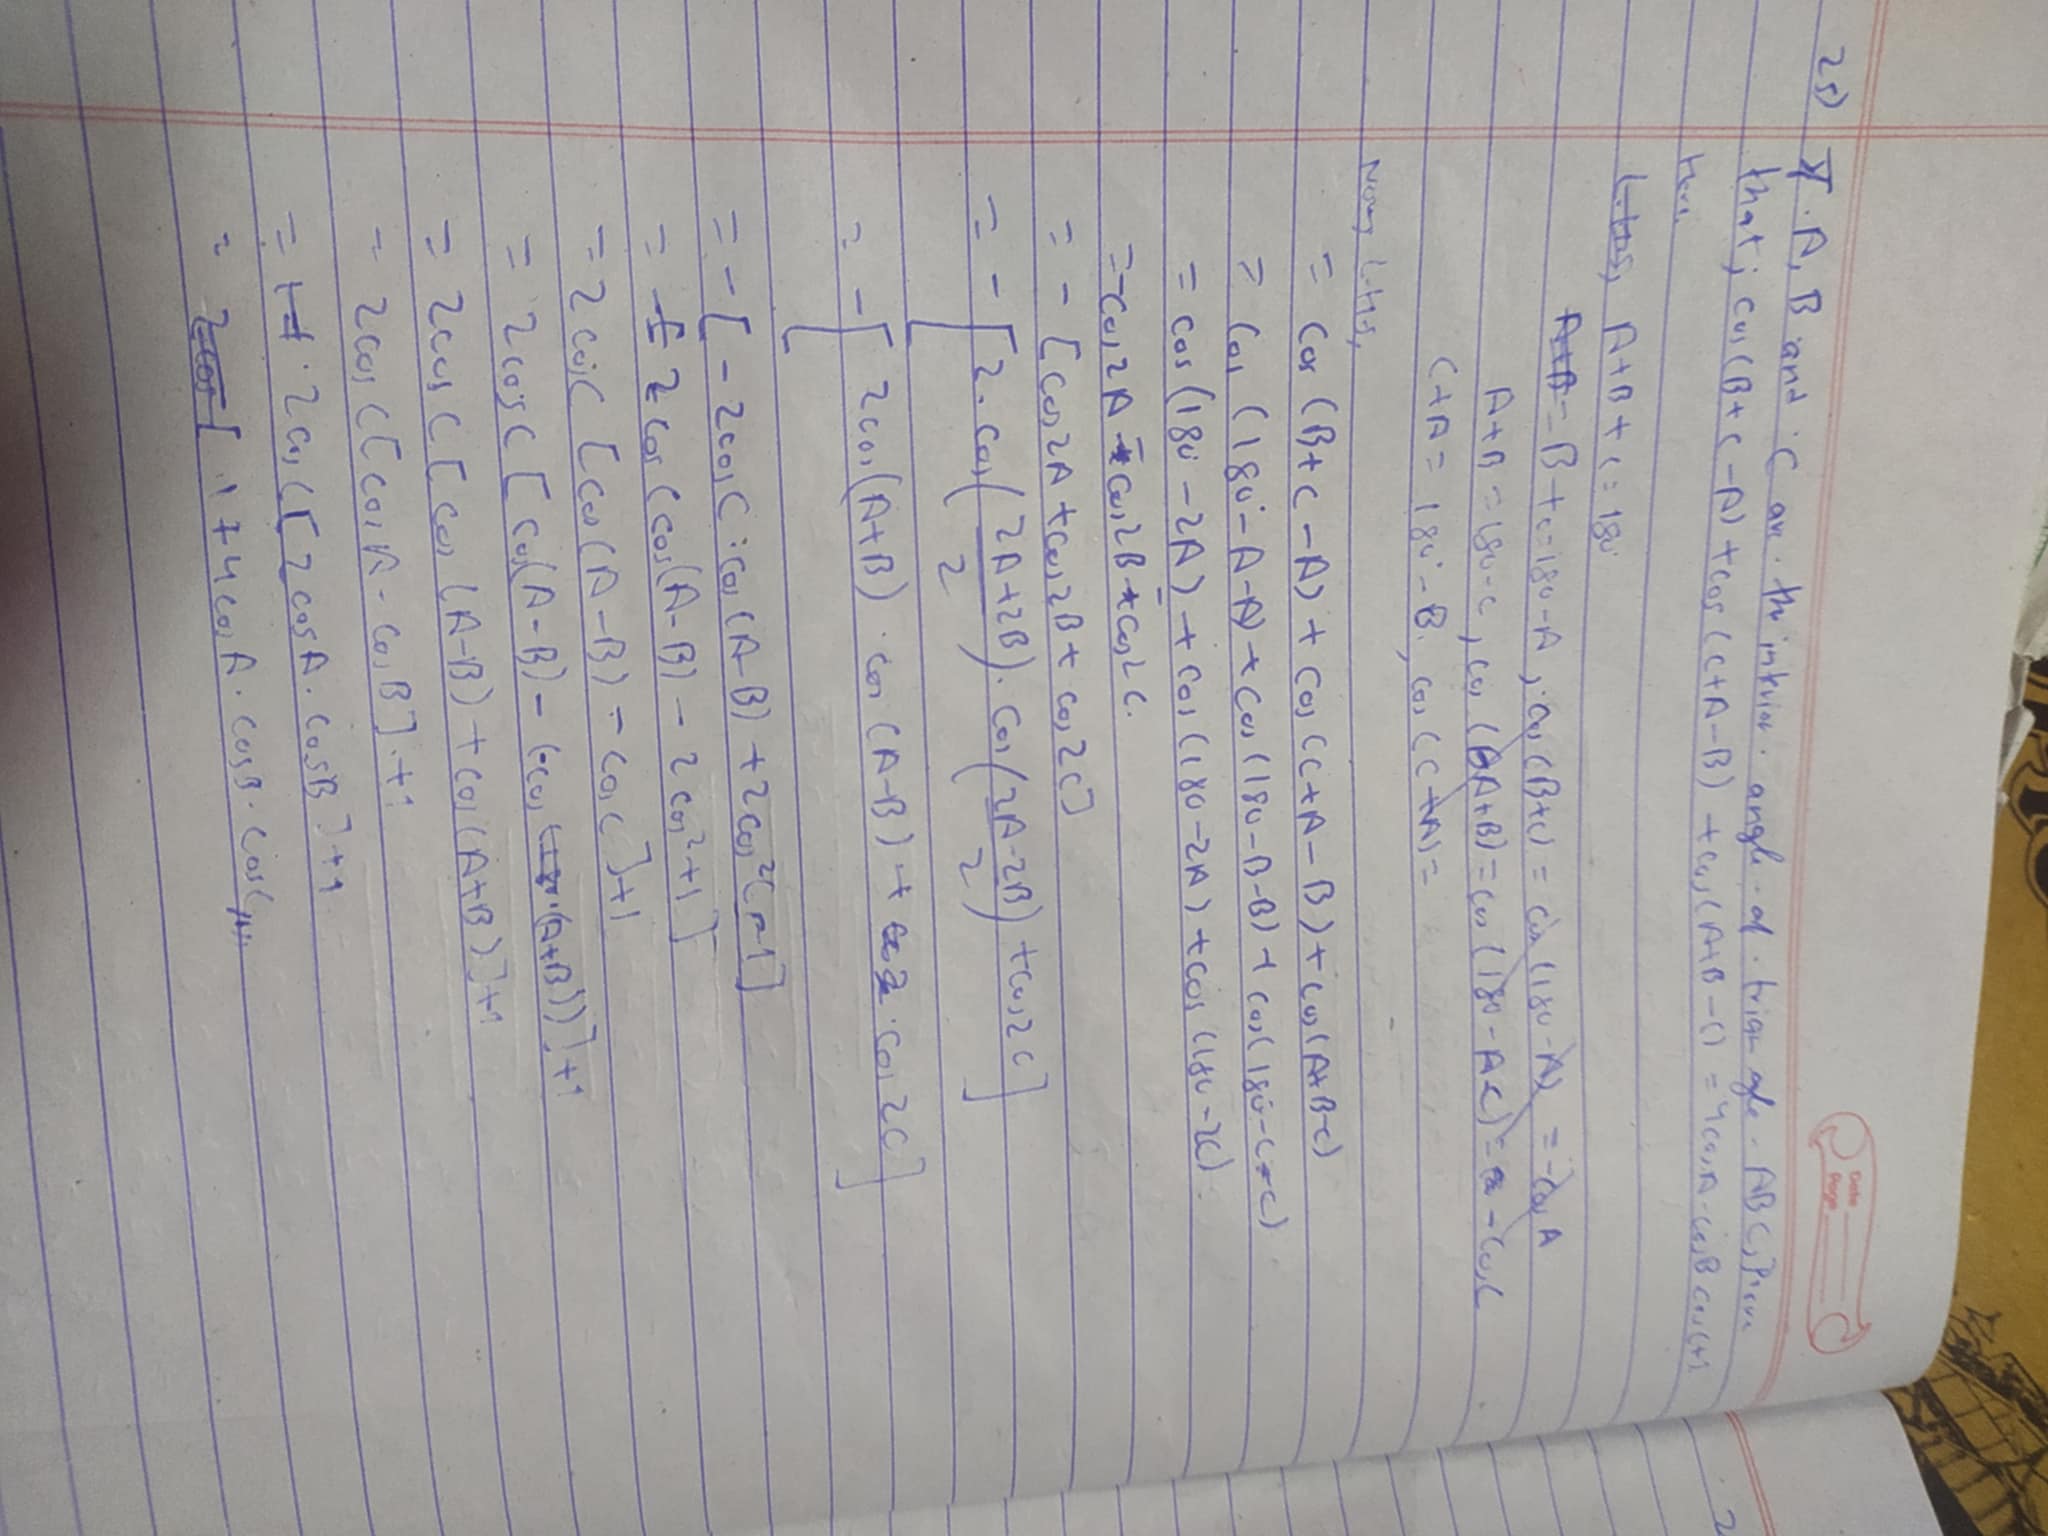 Date
Page
25) If A, B and C are the interior angle of triangle ABC, Prove
that; cos(B+C-A) + cos(C+A-B) + cos(A+B-C) = 4cosA.cosB cosC+1
Here,
L.H.S, A+B+C=180°
A+B = B+C=180-A, cos(B+C) = cos(180-A) = -cosA
A+B = 180-C, cos(A+B) = cos(180-C) = -cosC
C+A = 180°-B, cos(C+A) =
Now, L.H.S,
= cos(B+C-A) + cos(C+A-B) + cos(A+B-C)
= cos(180°-A-A) + cos(180-B-B) + cos(180-C-C)
= cos(180-2A) + cos(180-2A) + cos(180-2C).
= -cos2A - cos2B - cos2C.
= -[cos2A + cos2B + cos2C]
= -[2.cos(2A+2B/2).cos(2A-2B/2) + cos2C]
= -[2cos(A+B).cos(A-B) + cos2C]
= -[-2cosC.cos(A-B) + 2cos²C-1]
= 2cosCcos(A-B) - 2cos²+1]
= 2cosC[cos(A-B) - cosC]+1
= 2cosC[cos(A-B) - (-cos(A+B))]+1
= 2cosC[cos(A-B) + cos(A+B)]+1
= 2cosC[cosA - cosB].+1
= 2cosC[2cosA.cosB]+1
= 1+4cosA.cosB.cosC
2